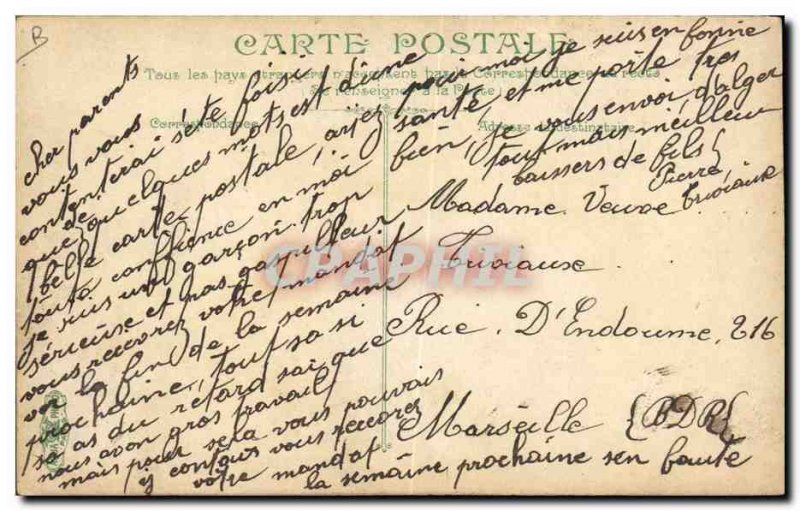 B
CARTE POSTALE
Tous les pays étrangers n'acceptent pas la Correspondance au recto
Se renseigner à la Poste
Correspondance
Adresse du destinataire
cher parents
vous vous
contenterai sète fois si
que de quelques mots est d'une
belle carte postale, aiez
toute confience en moi
je suis un garçon trop
sérieuse et pas gaspilleur
vous recevrez votre mandat
ver la fin de la semaine
prochaine, tout sa si
sa as du retard sai que
nous avon gros travail
mais pour sela vous pouvais
y contais vous recevrez
votre mandat
la semaine prochaine sen faute
pour moi je suis en bonne
santé, et me porte tres
bien, je vous envoi d'alger
tout mais meilleur
baissers de fils
Pierre
Triviaux
Madame Veuve
Triviaux
Rue. D'Endoume. 216
Marseille (BDR)
CPAPHIL